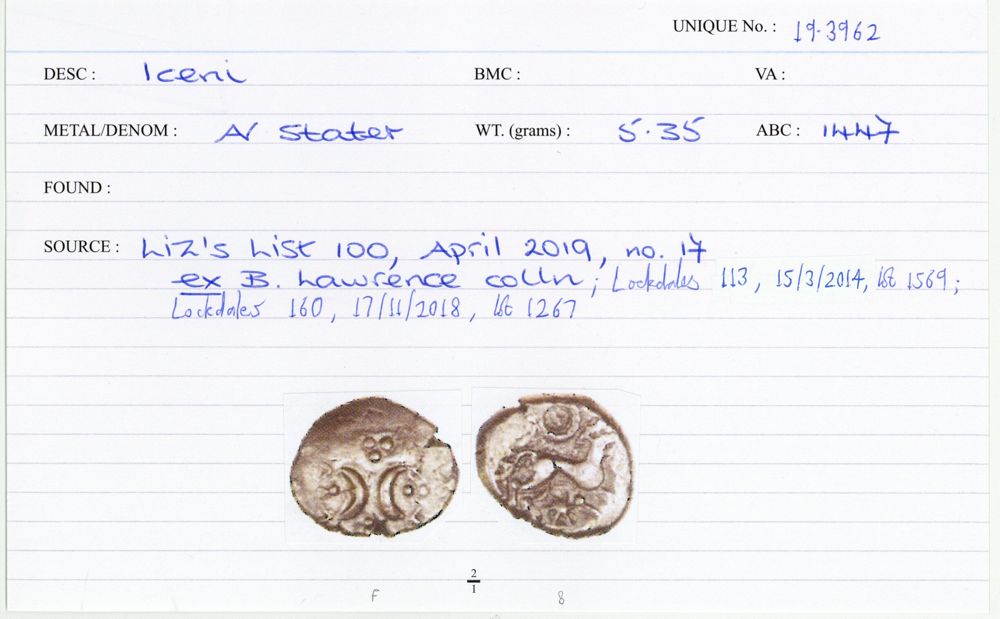 UNIQUE No. : 19.3962
DESC : Iceni BMC : VA :
METAL/DENOM : AV Stater WT. (grams) : 5.35 ABC : 1447
FOUND :
SOURCE : Liz's List 100, April 2019, no. 17
ex B. Lawrence colln; Lockdales 113, 15/3/2014, lot 1569;
Lockdales 160, 17/11/2018, lot 1267
2
1
F 8